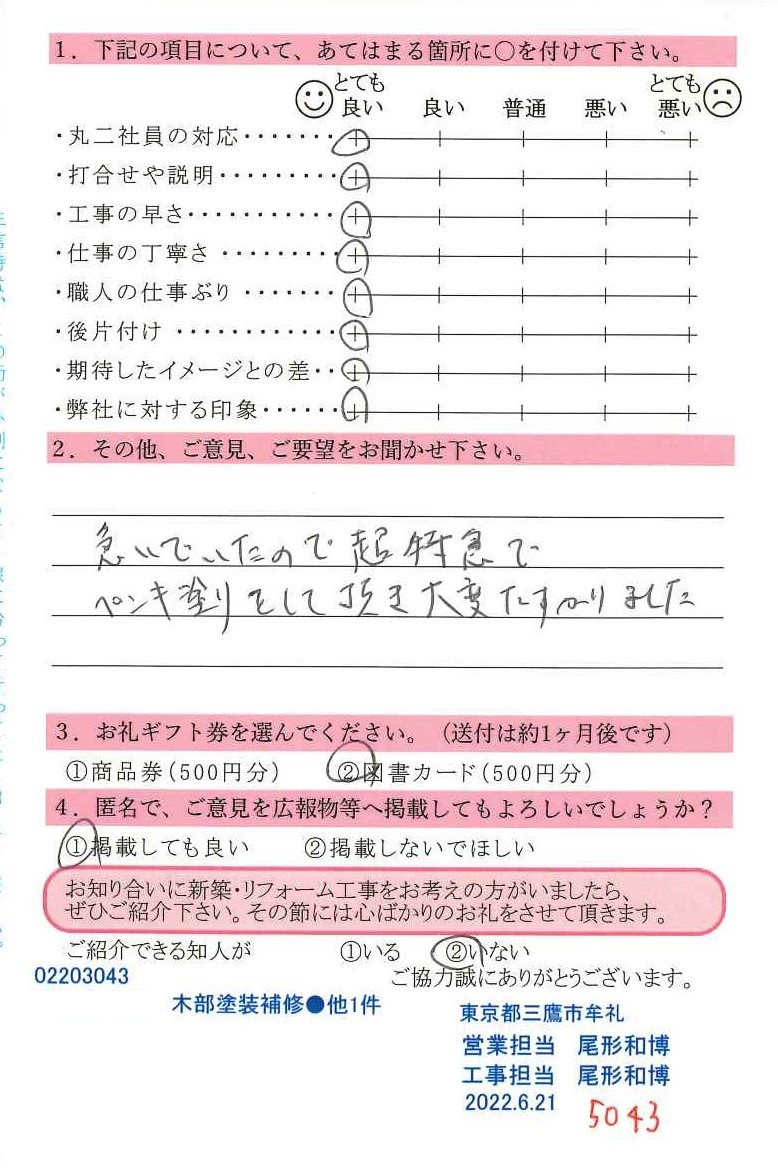 1．下記の項目について、あてはまる箇所に○を付けて下さい。
とても良い 良い 普通 悪い とても悪い
・丸二社員の対応・・・・・・・
・打合せや説明・・・・・・・・・
・工事の早さ・・・・・・・・・・・
・仕事の丁寧さ ・・・・・・・・・
・職人の仕事ぶり ・・・・・・・
・後片付け ・・・・・・・・・・・・
・期待したイメージとの差・・
・弊社に対する印象・・・・・・
2．その他、ご意見、ご要望をお聞かせ下さい。
急いでいたので超特急で
ペンキ塗りをして頂き大変たすかりました
3．お礼ギフト券を選んでください。（送付は約1ヶ月後です）
①商品券（500円分） ②図書カード（500円分）
4．匿名で、ご意見を広報物等へ掲載してもよろしいでしょうか？
①掲載しても良い ②掲載しないでほしい
お知り合いに新築・リフォーム工事をお考えの方がいましたら、
ぜひご紹介下さい。その節には心ばかりのお礼をさせて頂きます。
ご紹介できる知人が ①いる ②いない
02203043
ご協力誠にありがとうございます。
木部塗装補修●他1件
東京都三鷹市牟礼
営業担当 尾形和博
工事担当 尾形和博
2022.6.21
5043